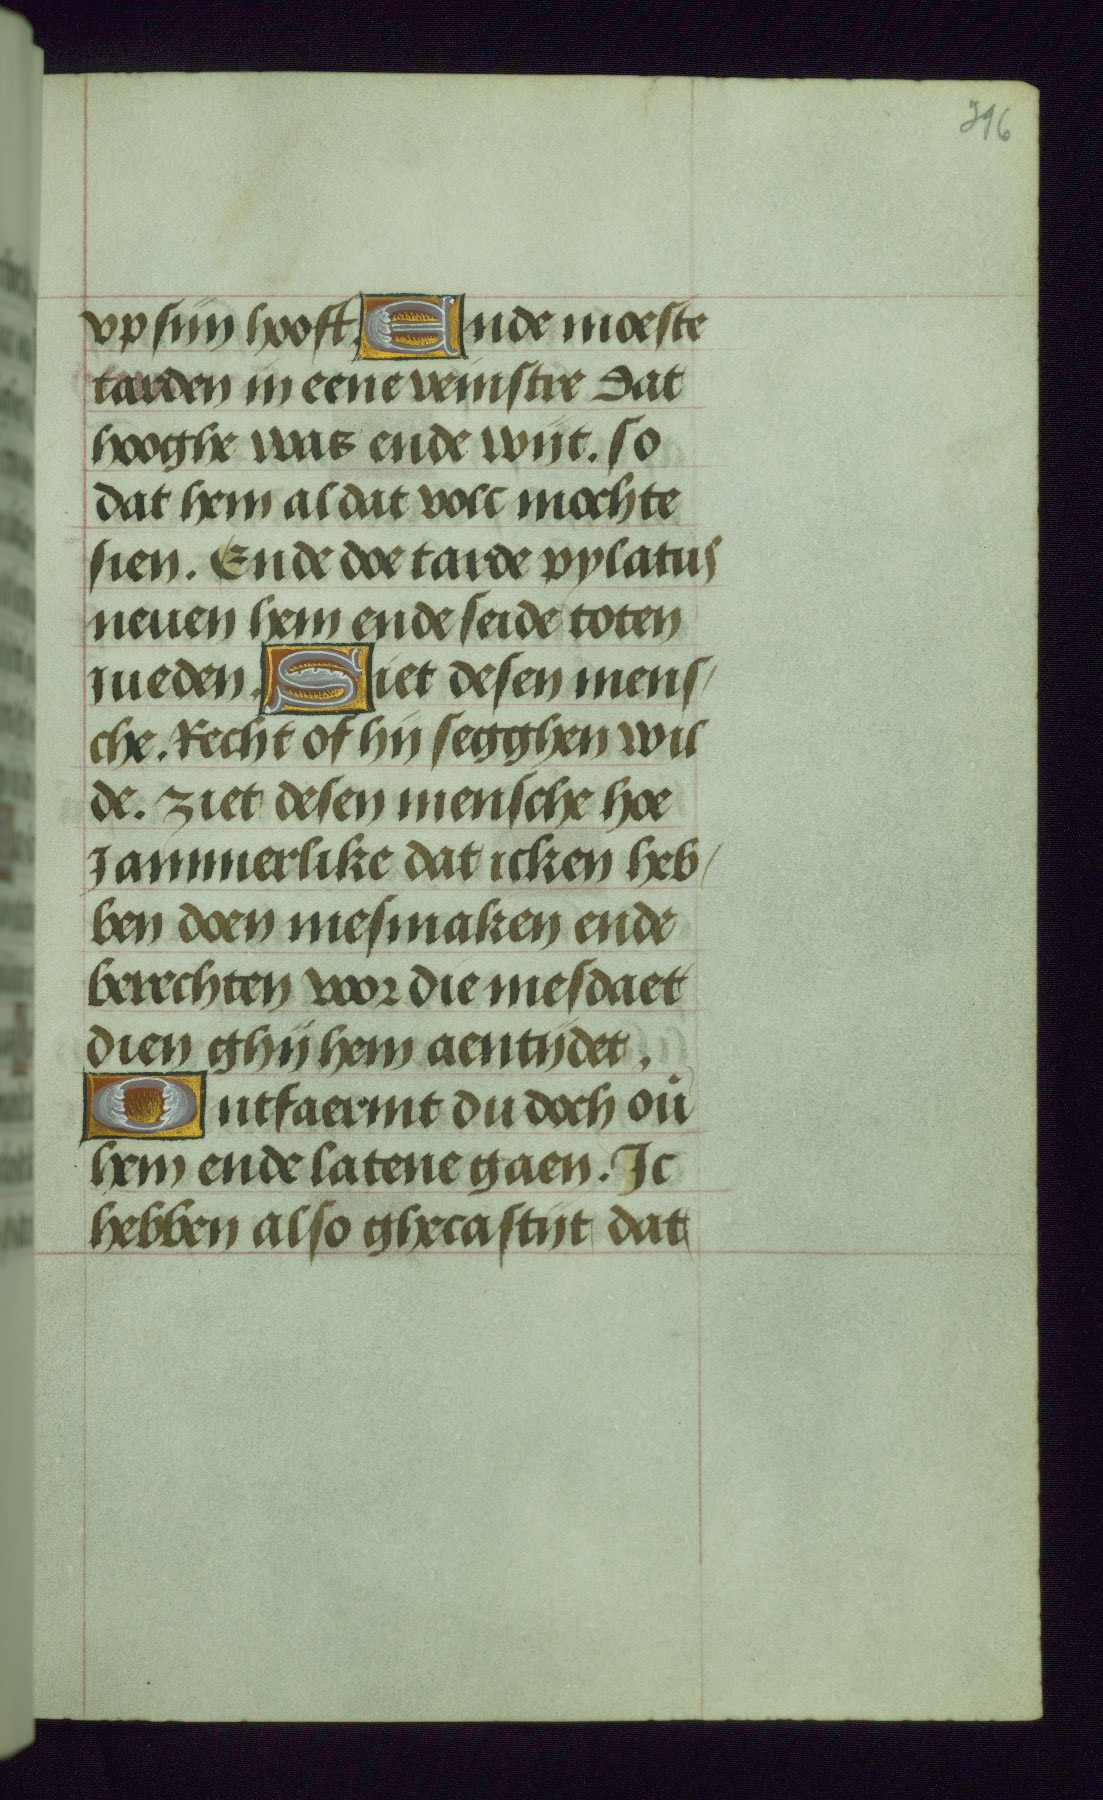 296
vp sijn hooft. Ende moeste
tarden in eene veinstre Dat
hooghe was ende wijt. so
dat hem al dat volc mochte
sien. Ende doe tarde pylatus
neuen hem ende seide toten
iueden. Siet desen mens/
che. Recht of hij segghen wil
de. ziet desen mensche hoe
Jammerlike dat icken heb/
ben doen mesmaken ende
berechten voor die mesdaet
dien ghij hem aentijdet.
Ontfaermt du doch oū
hem ende latene gaen. Ic
hebben also ghecastijt dat